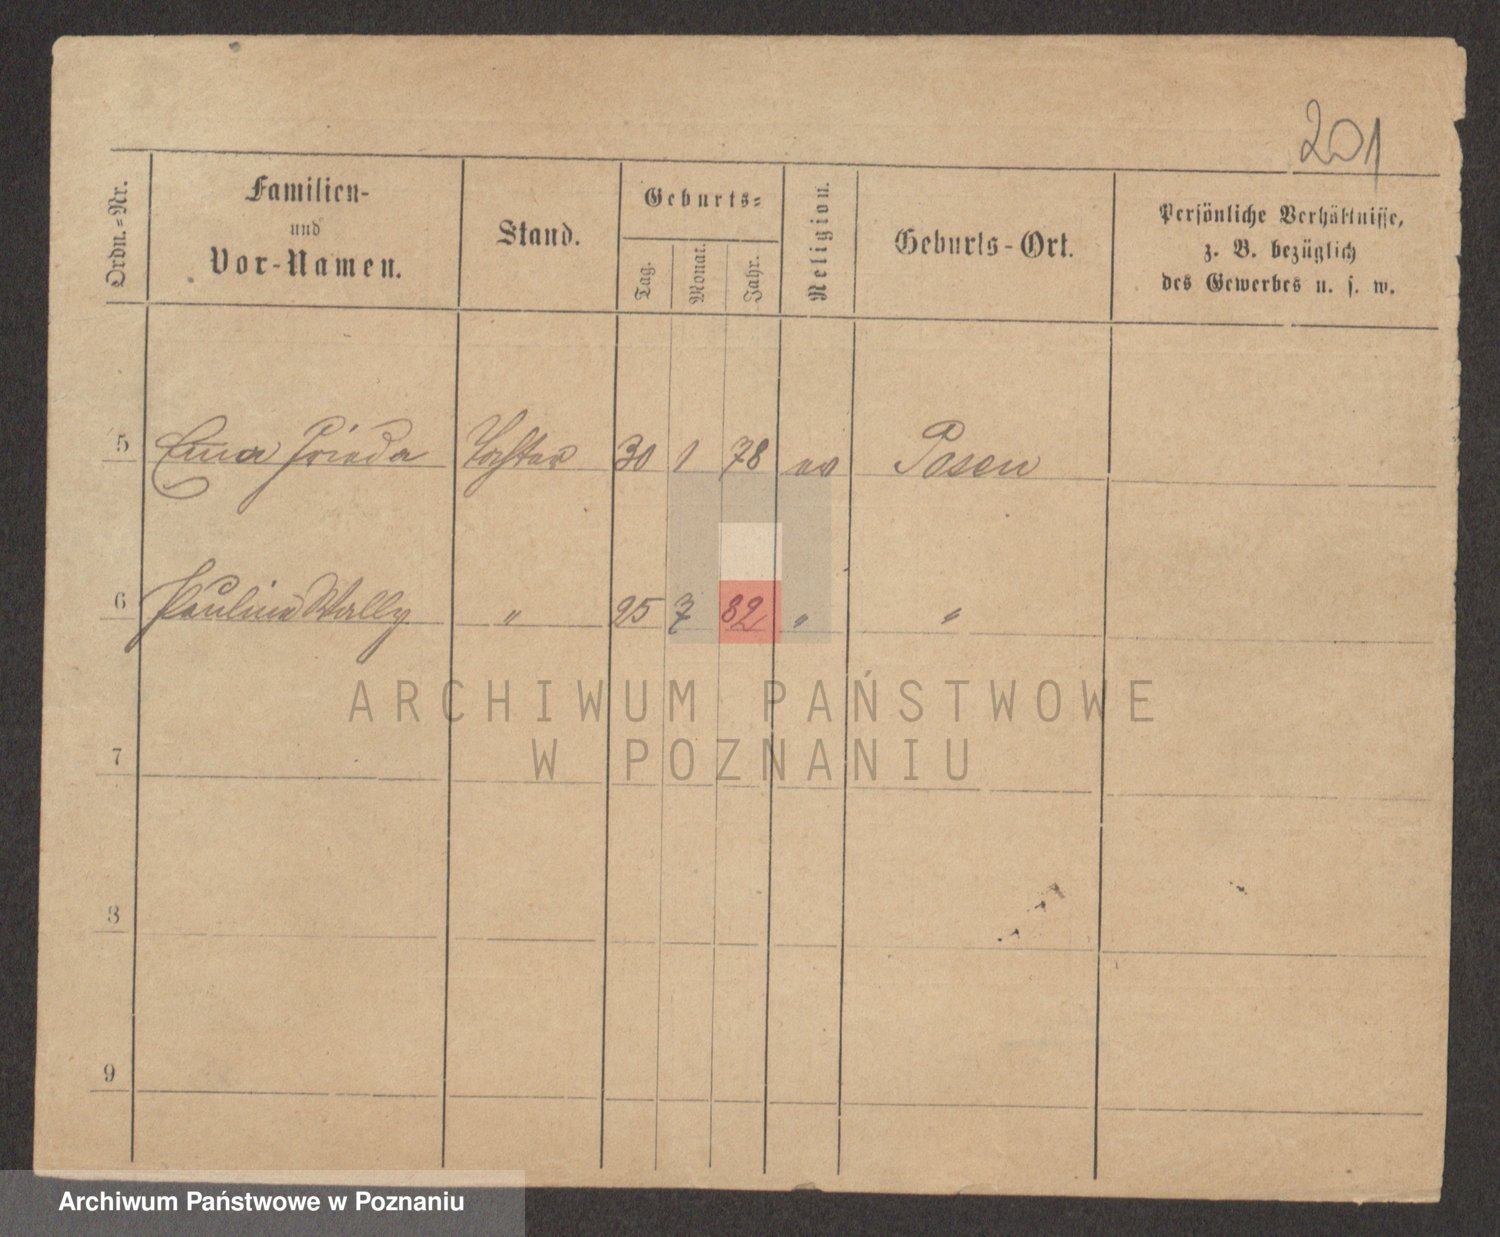 201
Ordn.-Nr.
Familien-
und
Vor-Namen.
Stand.
Geburts-
Tag.
Monat.
Jahr.
Religion.
Geburts-Ort.
Persönliche Verhältnisse,
z. B. bezüglich
des Gewerbes u. s. w.
5 Ema Frieda Tochter 30 1 78 ev Posen
6 Pauline Wally " 25 7 82 " "
ARCHIWUM PAŃSTWOWE
W POZNANIU
7
8
9
Archiwum Państwowe w Poznaniu